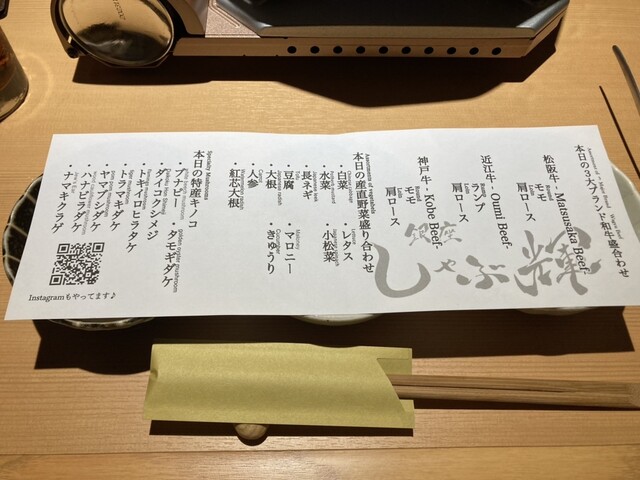 本日の3大ブランド和牛盛合わせ
松阪牛 - Matsusaka Beef-
モモ
肩ロース
近江牛 - Oumi Beef-
ランプ
肩ロース
神戸牛 - Kobe Beef-
モモ
肩ロース
銀座
しゃぶ輝
本日の産直野菜盛り合わせ
・白菜 ・レタス
・水菜 ・小松菜
・長ネギ
・豆腐 ・マロニー
・大根 ・きゅうり
・人参
・紅芯大根
Specialty Mushrooms
本日の特産キノコ
・ブナピー ・タモギダケ
・ダイコクシメジ
・トキイロヒラタケ
・トラマキダケ
・ヤマブシダケ
・ハナビラダケ
・ナマキクラゲ
Instagramもやってます♪